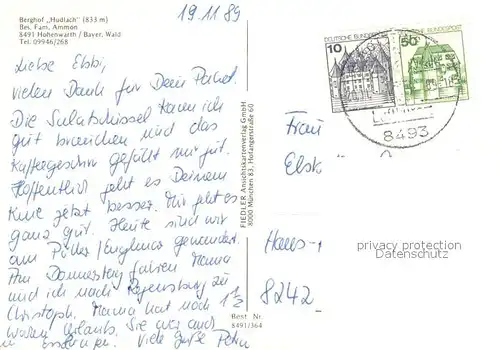 Berghof „Hudlach" (833 m)
Bes. Fam. Ammon
8491 Hohenwarth / Bayer. Wald
Tel. 09946/268
19.11.89
Liebe Elsbi,
vielen Dank für Dein Paket.
Die Salatschüssel kann ich
gut brauchen und das
Kaffeegeschirr gefällt mir gut.
Hoffentlich geht es Deinem
Knie jetzt besser. Mir geht es
ganz gut. Heute sind wir
am Pröller/Englmar gewandert.
Am Donnerstag fahren Mama
und ich nach Regensburg zu
Christoph. Mama hat noch 1 1/2
Wochen Urlaub. Sie war auch
Viele Grüße Petra
FIEDLER Ansichtskartenverlag GmbH
8000 München 83, Hofangerstraße 60
Best. Nr.
8491/364
10
DEUTSCHE BUNDESPOST
50
8493
Frau
Elsb
Hans-
8242
privacy protection
Datenschutz